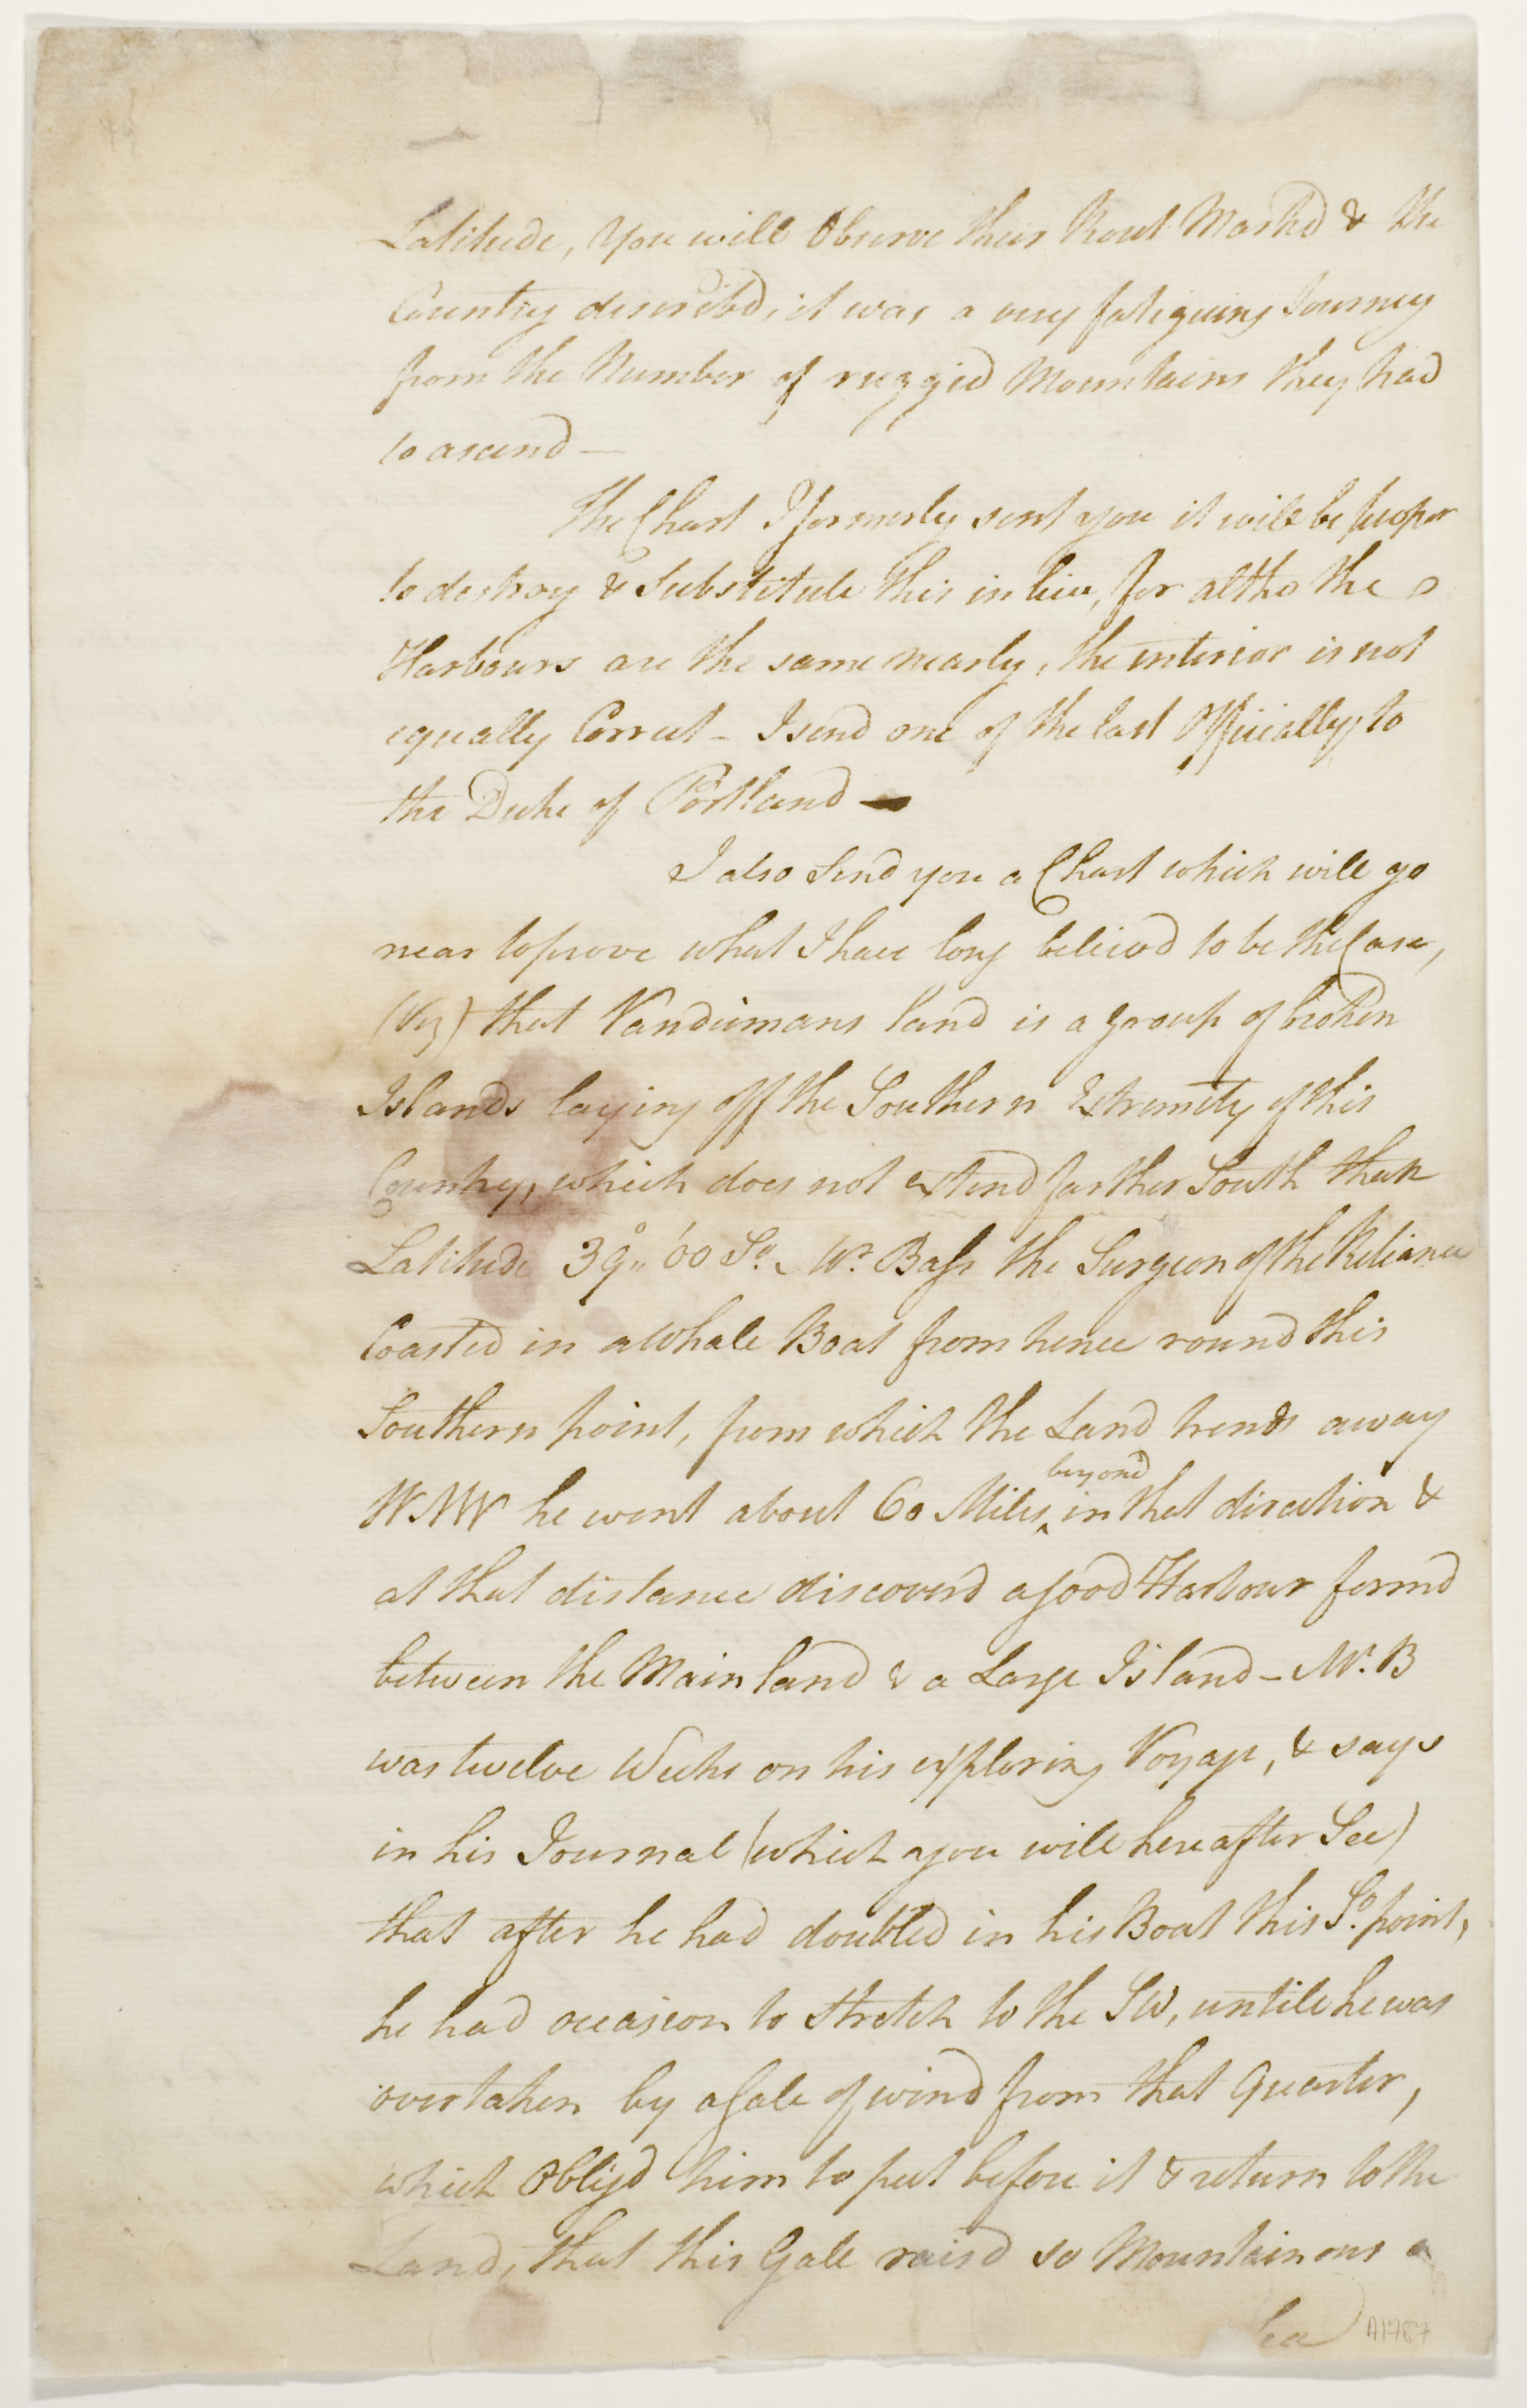 Latitude, You will Observe their Rout Markd & the
Country describd, it was a very fatiguing Journey
from the Number of rugged Mountains they had
to ascend —
The Chart I formerly sent you it will be proper
to destroy & Substitute this in lieu, for altho the
Harbours are the same nearly, the interior is not
equally Correct – I send one of the last Officially to
the Duke of Portland —
I also Send you a Chart which will go
near to prove what I have long believd to be the Case,
(Viz) that Vandiemans land is a group of broken
Islands laying off the Southern Extremity of this
Country, which does not extend farther South than
Latitude 39°,, 00 So. Mr. Bass the Surgeon of the Reliance
Coasted in a Whale Boat from hence round this
Southern point, from which the Land trends away
beyond
WNW he went about 60 Miles ‸ in that direction &
at that distance discoverd a good Harbour formd
between the Main land & a Large Island – Mr. B
was twelve Weeks on his exploring Voyage, & says
in his Journal (which you will hereafter See)
that after he had doubled in his Boat this So. point,
he had occasion to Stretch to the SW, untill he was
overtaken by a Gale of wind from that Quarter,
which Obligd him to put before it & return to the
Land, that this Gale raisd so Mountainous a
Sea
A1787